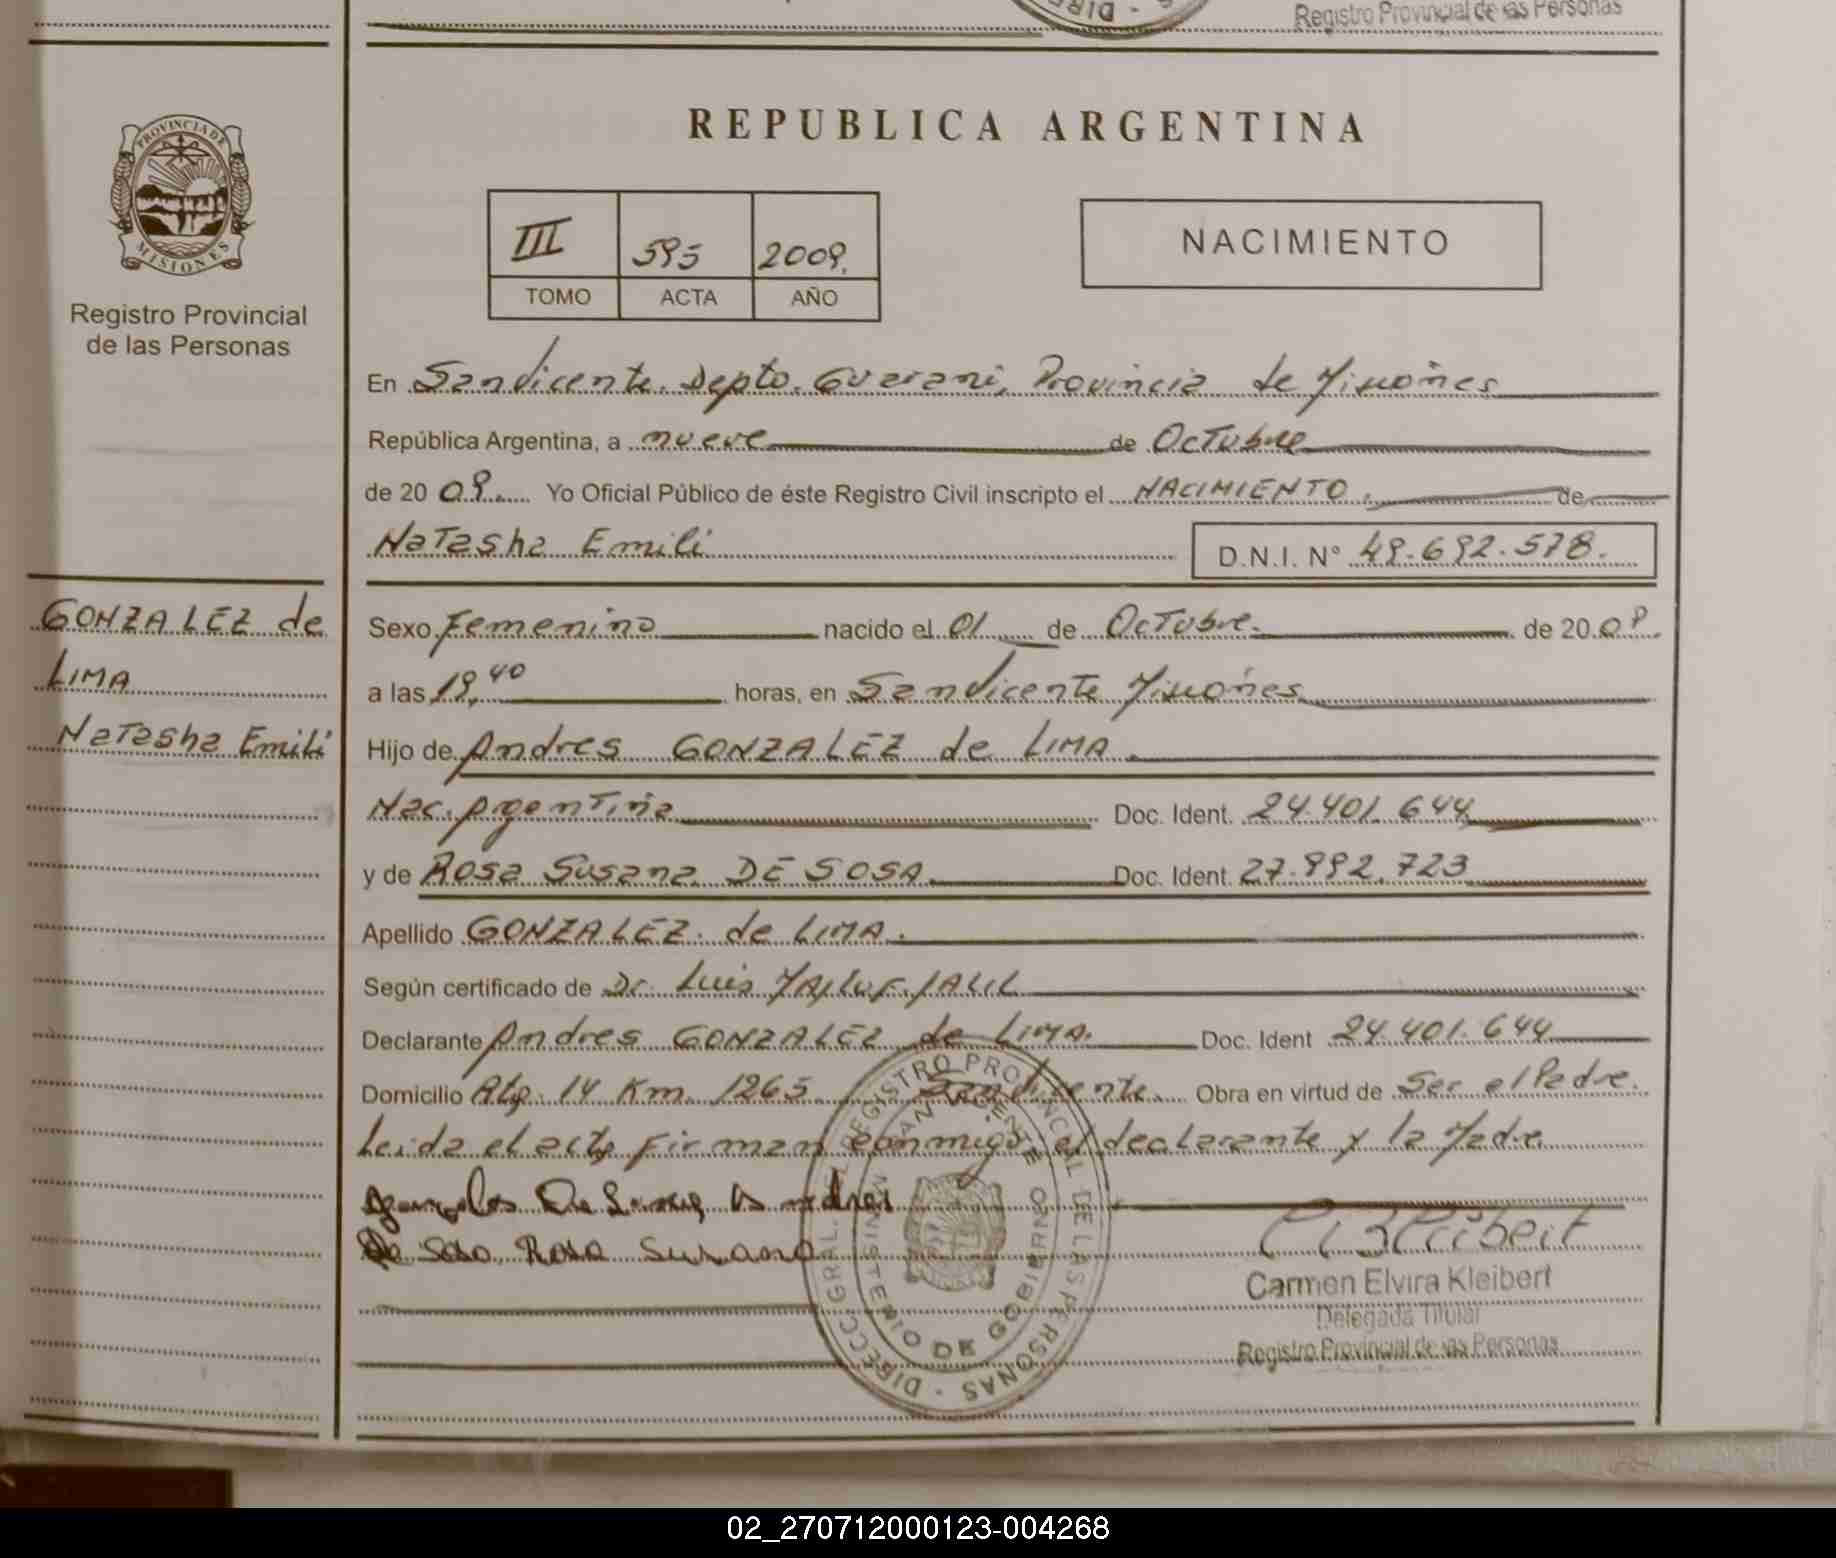 Registro Provincial de las Personas
PROVINCIA DE
MISIONES
Registro Provincial
de las Personas
REPUBLICA ARGENTINA
III 595 2009.
TOMO ACTA AÑO
NACIMIENTO
En San Vicente. Depto. Guarani, Provincia de Misiones
República Argentina, a nueve de Octubre
de 20 09. Yo Oficial Público de éste Registro Civil inscripto el NACIMIENTO. de
Natasha Emili D.N.I. N° 49.692.578.
GONZALEZ de
LIMA
Natasha Emili
Sexo Femenino nacido el 01 de Octubre. de 20.09.
a las 19,40 horas, en San Vicente Misiones
Hijo de Andres GONZALEZ de LIMA.
Nac. Argentina Doc. Ident. 24.401.644
y de Rosa Susana DE SOSA. Doc. Ident. 27.992.723
Apellido GONZALEZ. de LIMA.
Según certificado de Dr. Luis JALIL
Declarante Andres GONZALEZ de LIMA. Doc. Ident 24.401.644
Domicilio 14 Km. 1265 San Vicente. Obra en virtud de Ser el Padre.
Leida el acta Firman conmigo el declarante y la Madre
Gonzales De Lima Andres
De Sosa Rosa Susana
DIRECC. GRAL. DEL REGISTRO PROVINCIAL DE LAS PERSONAS
SAN VICENTE
MINISTERIO DE GOBIERNO
Carmen Elvira Kleibert
Delegada Titular
Registro Provincial de las Personas
02_270712000123-004268